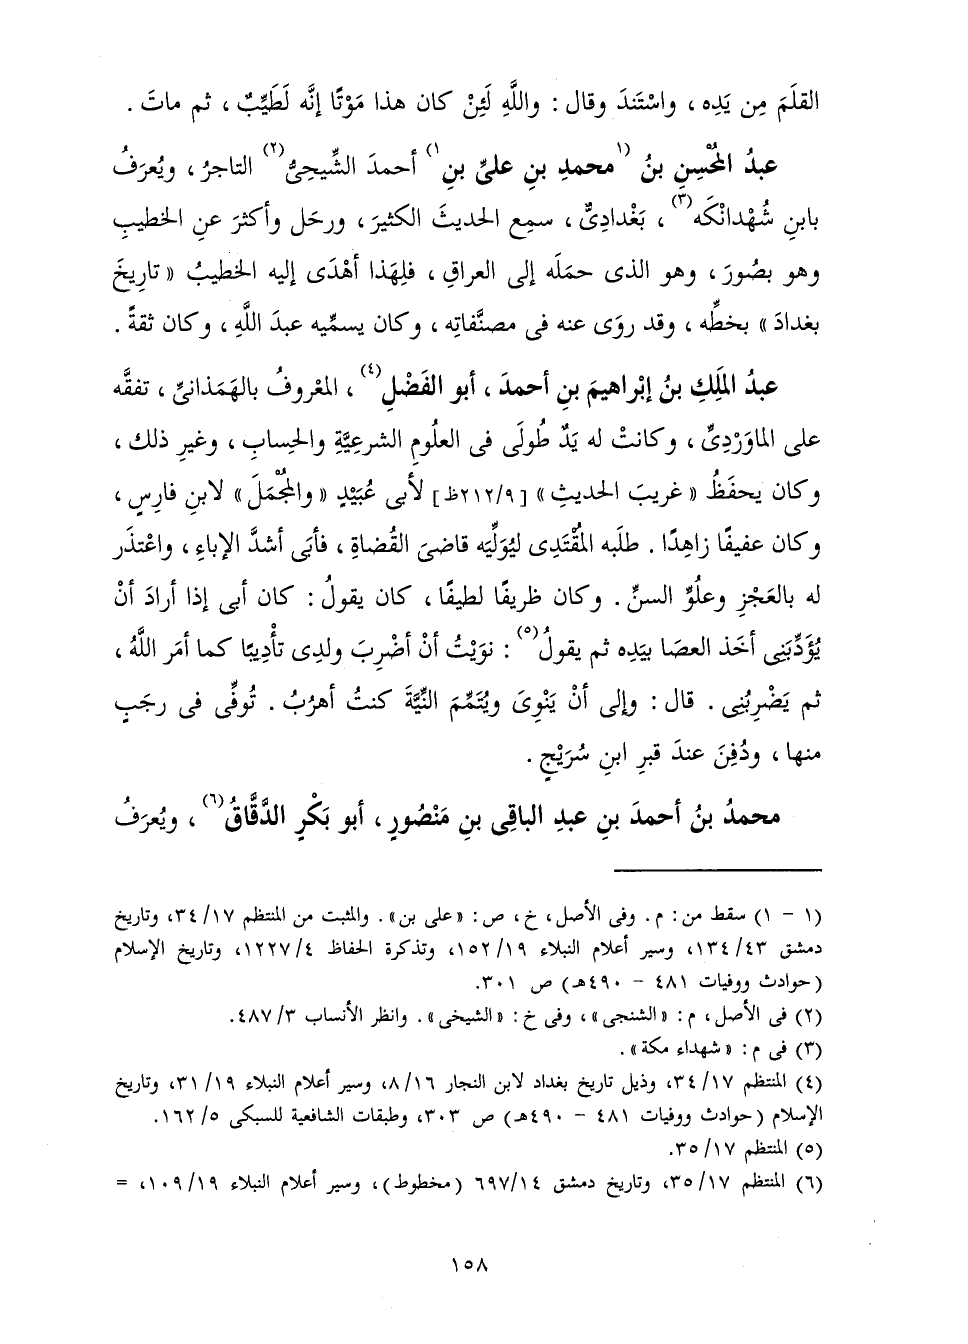 القلَمَ مِن يَدِه ، واسْتَندَ وقال : واللَّهِ لَئِنْ كان هذا مَوْتًا إنَّه لَطَيِّبٌ ، ثم ماتَ .
عبدُ المُحْسِنِ بنُ (١ محمدِ بنِ علىِّ بنِ ١) أحمدَ الشِّيحِىُّ (٢) التاجرُ ، ويُعرَفُ
بابنِ شُهْدانْكَه (٣) ، بَغْدادِىٌّ ، سمِع الحديثَ الكثيرَ ، ورحَل وأكثرَ عنِ الخطيبِ
وهو بصُورَ ، وهو الذى حمَلَه إلى العراقِ ، فلِهَذا أهْدَى إليه الخطيبُ « تاريخَ
بغدادَ » بخطِّه ، وقد روَى عنه فى مصنَّفاتِه ، وكان يسمِّيه عبدَ اللَّهِ ، وكان ثقةً .
عبدُ المَلِكِ بنُ إبْراهيمَ بنِ أحمدَ ، أبو الفَضْلِ (٤) ، المعْروفُ بالهَمَذانىِّ ، تفقَّه
على الماوَرْدِىِّ ، وكانتْ له يَدٌ طُولَى فى العلُومِ الشرعِيَّةِ والحِسابِ ، وغيرِ ذلك ،
وكان يحفَظُ « غريبَ الحديثِ » [٢١٢/٩ظ] لأبى عُبَيْدٍ « والمُجْمَلَ » لابنِ فارِسٍ ،
وكان عفيفًا زاهِدًا . طلَبه المُقْتَدِى ليُوَلِّيَه قاضىَ القُضاةِ ، فأبَى أشدَّ الإباءِ ، واعْتذَر
له بالعَجْزِ وعلُوِّ السنِّ . وكان ظريفًا لطيفًا ، كان يقولُ : كان أبى إذا أرادَ أنْ
يُؤَدِّبَنِى أخَذ العصَا بيَدِه ثم يقولُ (٥) : نوَيْتُ أنْ أضْرِبَ ولدِى تأْديبًا كما أمَر اللَّهُ ،
ثم يَضْرِبُنِى . قال : وإلى أنْ يَنْوِىَ ويُتَمِّمَ النِّيَّةَ كنتُ أهرُبُ . تُوفِّى فى رجَبٍ
منها ، ودُفِنَ عندَ قبرِ ابنِ سُرَيْجٍ .
محمدُ بنُ أحمدَ بنِ عبدِ الباقِى بنِ مَنْصُورٍ ، أبو بَكْرٍ الدَّقَّاقُ (٦) ، ويُعرَفُ
(١ - ١) سقط من : م . وفى الأصل ، خ ، ص : «على بن» . والمثبت من المنتظم ٣٤/١٧، وتاريخ
دمشق ١٣٤/٤٣، وسير أعلام النبلاء ١٥٢/١٩، وتذكرة الحفاظ ١٢٢٧/٤، وتاريخ الإسلام
(حوادث ووفيات ٤٨١ - ٤٩٠هـ) ص ٣٠١.
(٢) فى الأصل ، م : «الشنجى» ، وفى خ : «الشيخى» . وانظر الأنساب ٤٨٧/٣.
(٣) فى م : «شهداء مكة» .
(٤) المنتظم ٣٤/١٧، وذيل تاريخ بغداد لابن النجار ٨/١٦، وسير أعلام النبلاء ٣١/١٩، وتاريخ
الإسلام (حوادث ووفيات ٤٨١ - ٤٩٠هـ) ص ٣٠٣، وطبقات الشافعية للسبكى ١٦٢/٥.
(٥) المنتظم ٣٥/١٧.
(٦) المنتظم ٣٥/١٧، وتاريخ دمشق ٦٩٧/١٤ (مخطوط) ، وسير أعلام النبلاء ١٠٩/١٩، =
١٥٨